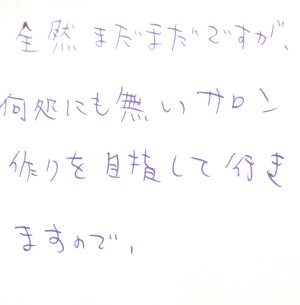 全然まだまだですが、
何処にも無いサロン
作りを目指して行き
ますので、